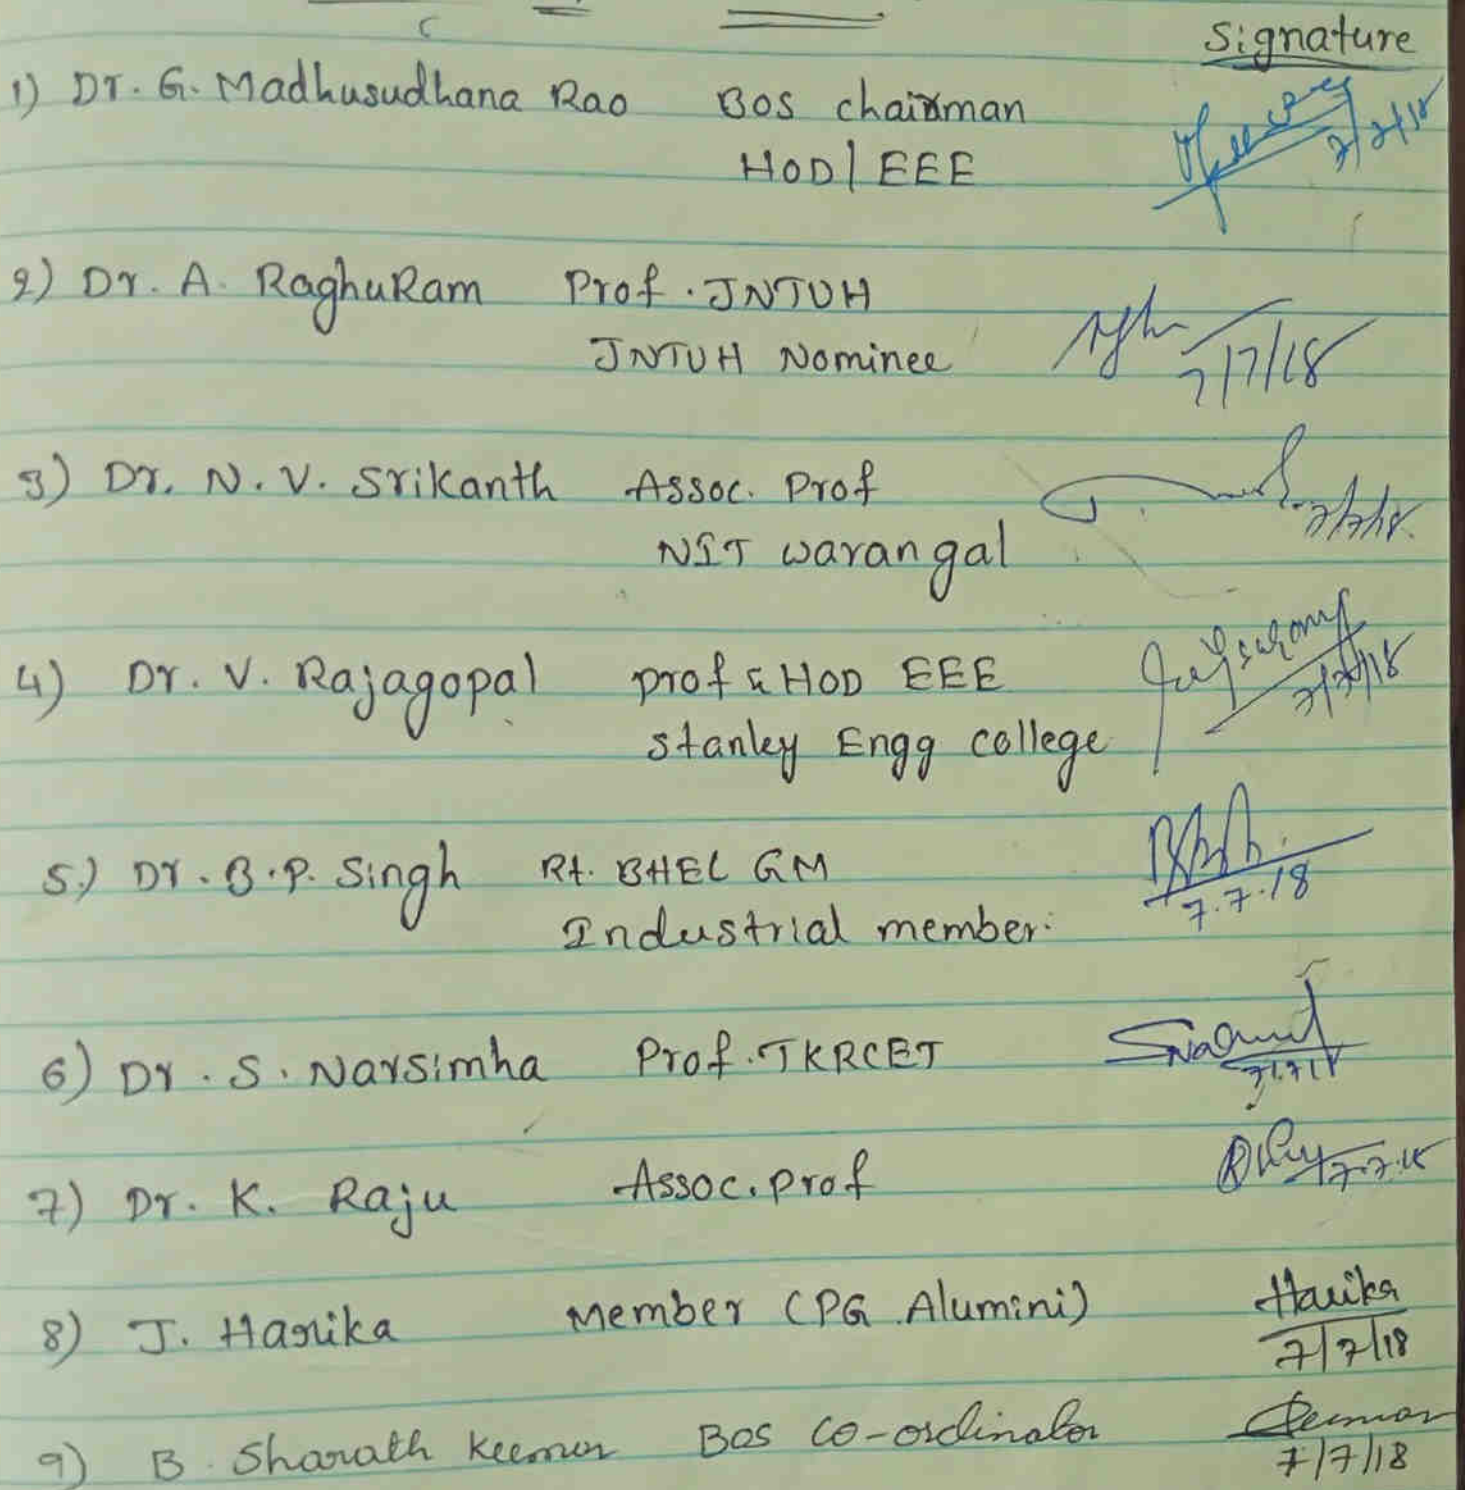 Signature
1) Dr. G. Madhusudhana Rao BOS chairman
HOD/EEE 7/7/18
2) Dr. A. RaghuRam Prof. JNTUH
JNTUH Nominee 7/7/18
3) Dr. N. V. Srikanth Assoc. Prof 7/7/18
NIT warangal
4) Dr. V. Rajagopal prof & HOD EEE 7/7/18
Stanley Engg college
5.) Dr. B.P. Singh Rt. BHEL GM
Industrial member. 7.7.18
6) Dr. S. Narsimha Prof. TKRCET 7/7/18
7) Dr. K. Raju Assoc. prof 7.7.18
8) J. Harika Member (PG Alumini) Harika
7/7/18
9) B. Sharath Kumar BOS Co-ordinator Kumar
7/7/18